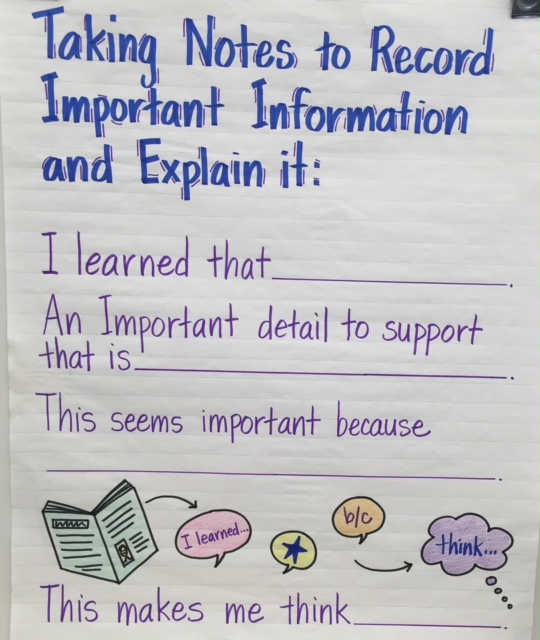 Taking Notes to Record
Important Information
and Explain it:
I learned that____________.
An Important detail to support
that is____________.
This seems important because
____________.
I learned...
b/c
think...
This makes me think____________.